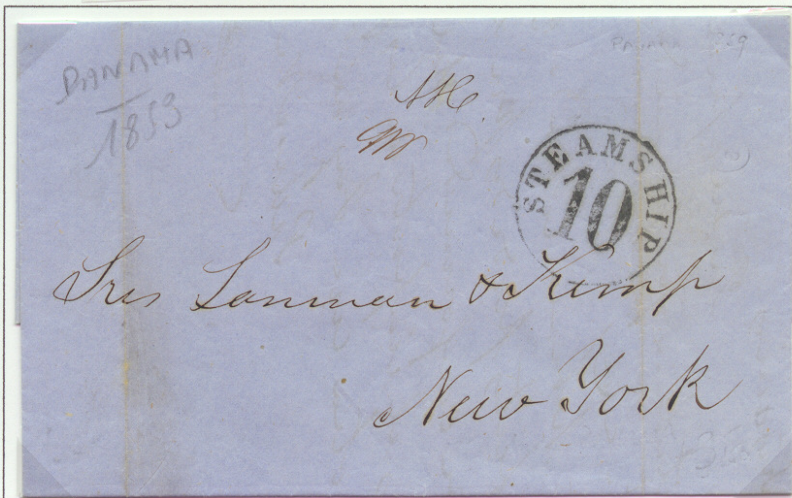 PANAMA
1853
STEAMSHIP
10
Sres Lanman & Kemp
New York